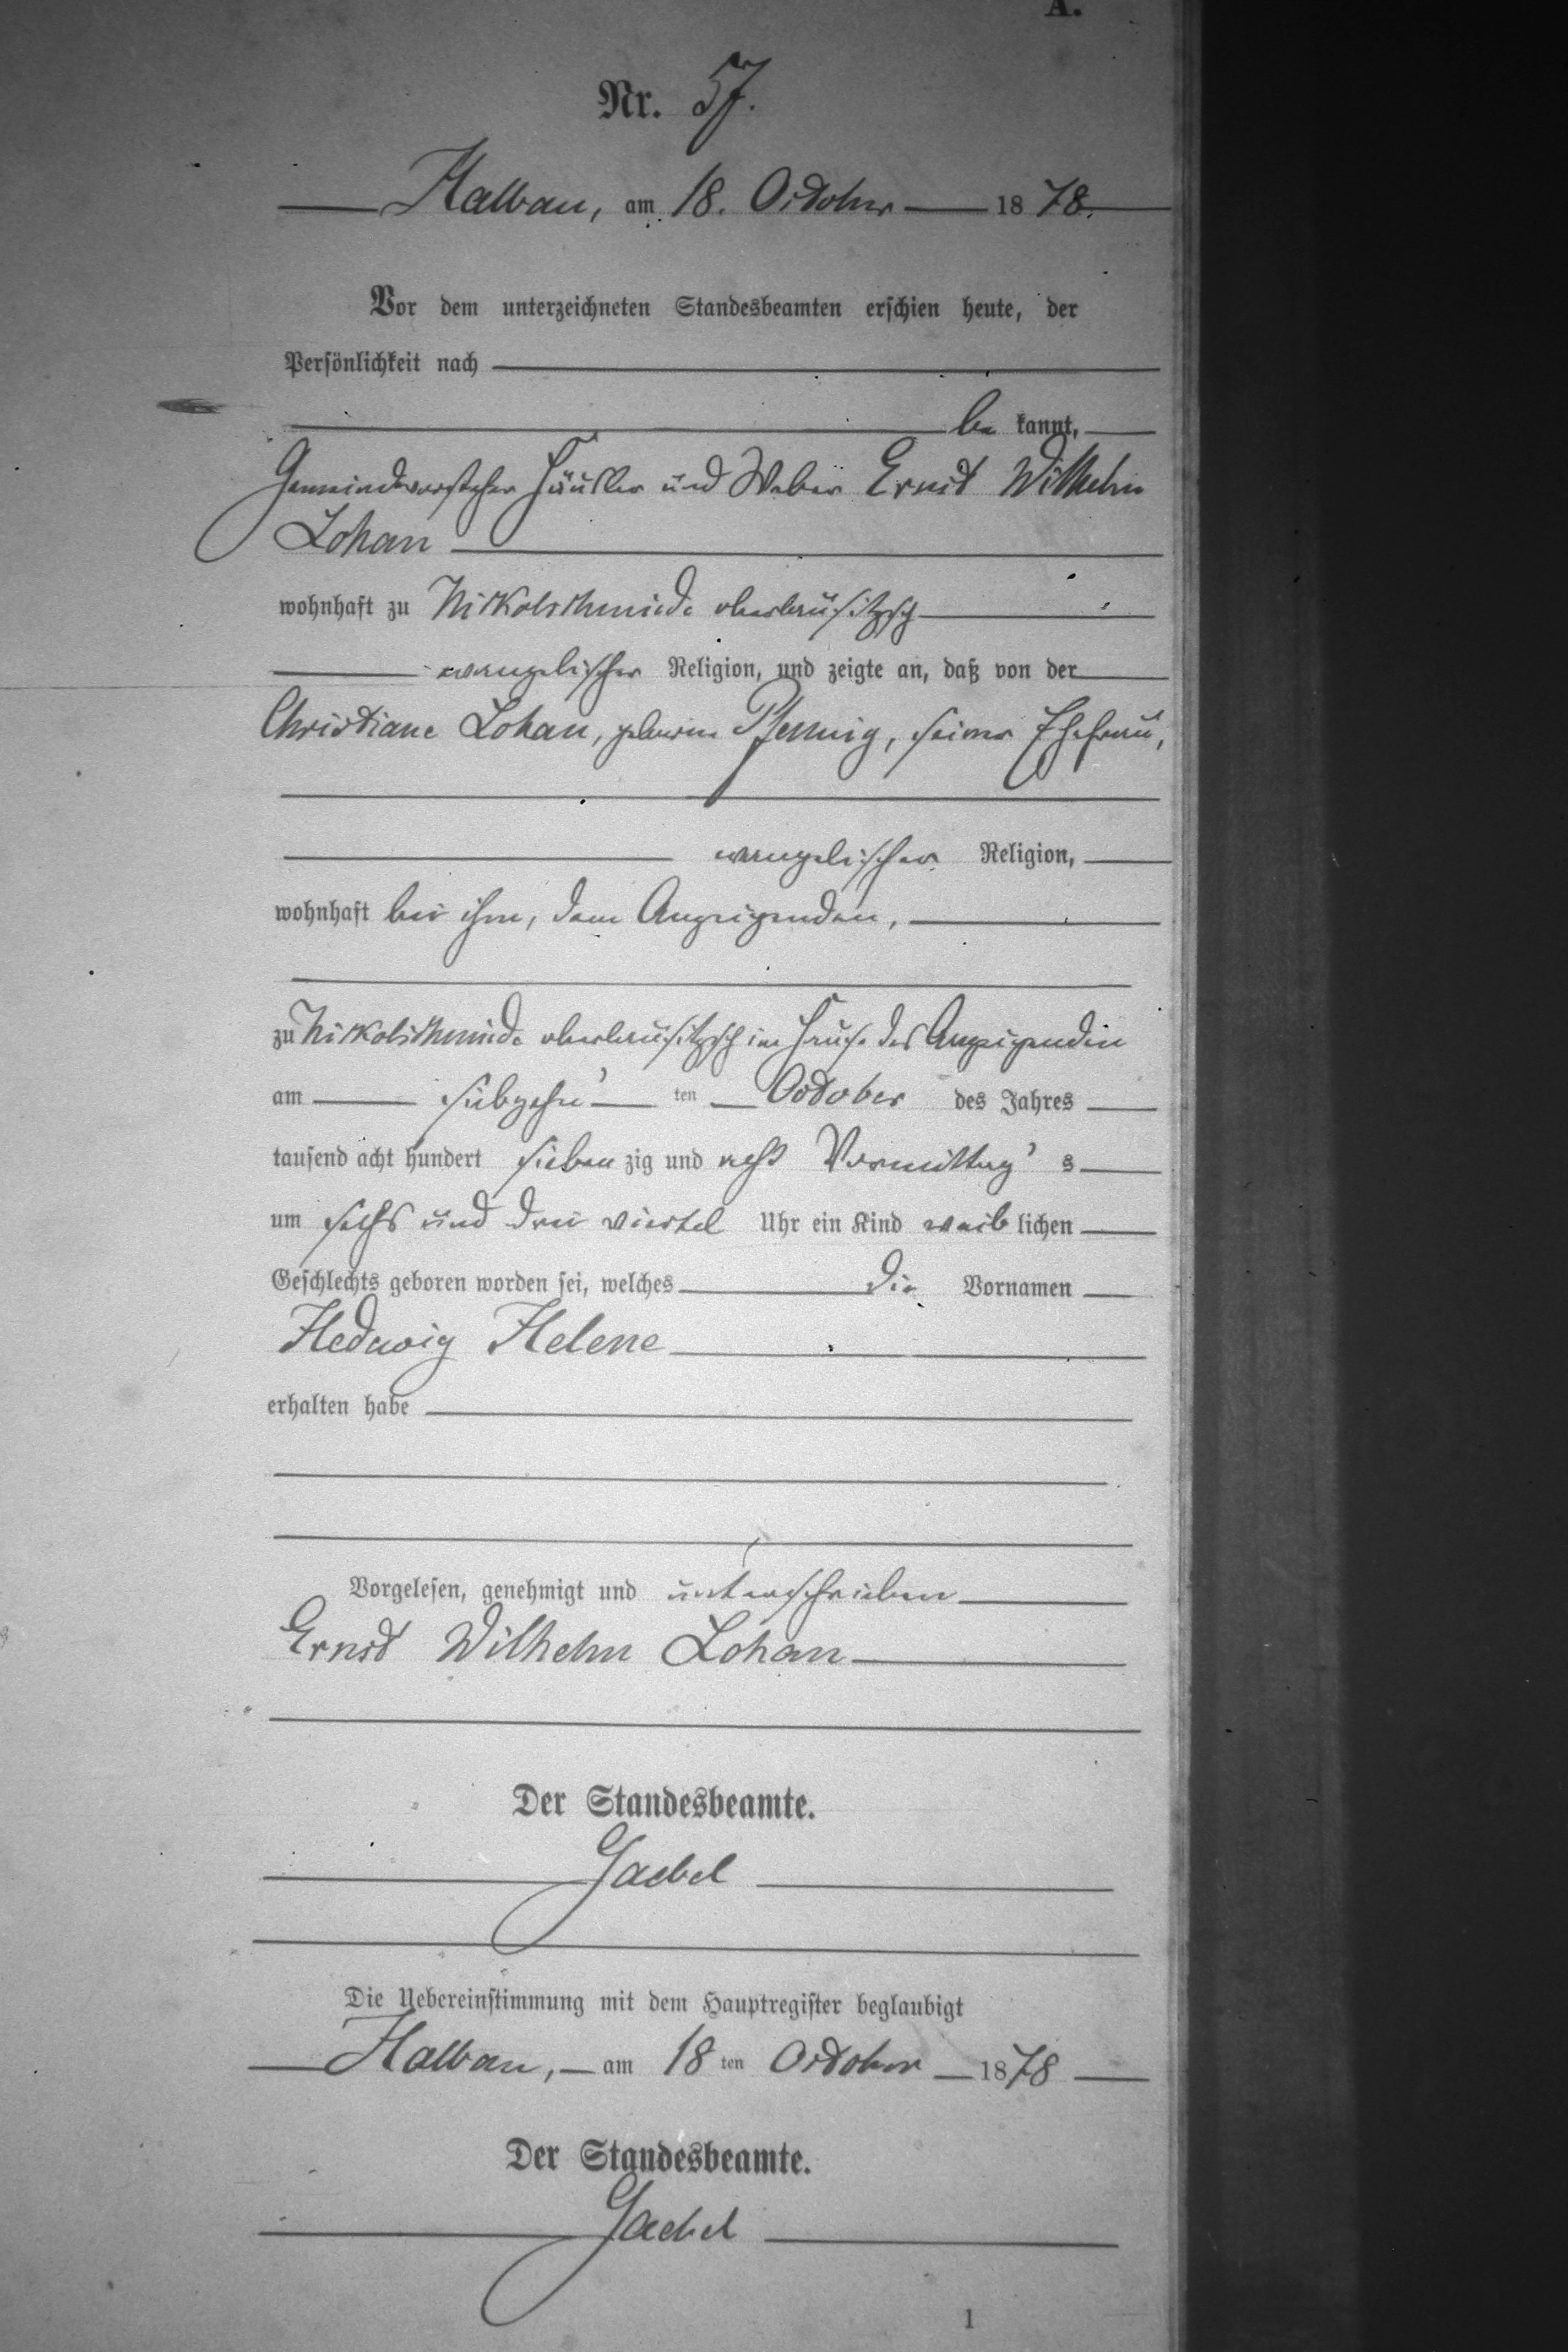 A.
Nr. 57.
Halbau, am 18. October 1878.
Vor dem unterzeichneten Standesbeamten erschien heute, der
Persönlichkeit nach
be kannt,
Gemeindevorsteher Häusler und Weber Ernst Wilhelm
Lohan
wohnhaft zu Nikolschmiede oberlausitzsch
evangelischer Religion, und zeigte an, daß von der
Christiane Lohan, geborene Pfennig, seiner Ehefrau,
evangelischer Religion,
wohnhaft bei ihm, dem Anzeigenden,
zu Nikolschmiede oberlausitzsch im Hause des Anzeigenden
am siebzehn ten October des Jahres
tausend acht hundert sieben zig und acht Vormittag s
um sechs und drei viertel Uhr ein Kind weib lichen
Geschlechts geboren worden sei, welches die Vornamen
Hedwig Helene
erhalten habe
Vorgelesen, genehmigt und unterschrieben
Ernst Wilhelm Lohan
Der Standesbeamte.
Gaebel
Die Uebereinstimmung mit dem Hauptregister beglaubigt
Halbau, am 18 ten October 1878
Der Standesbeamte.
Gaebel
1